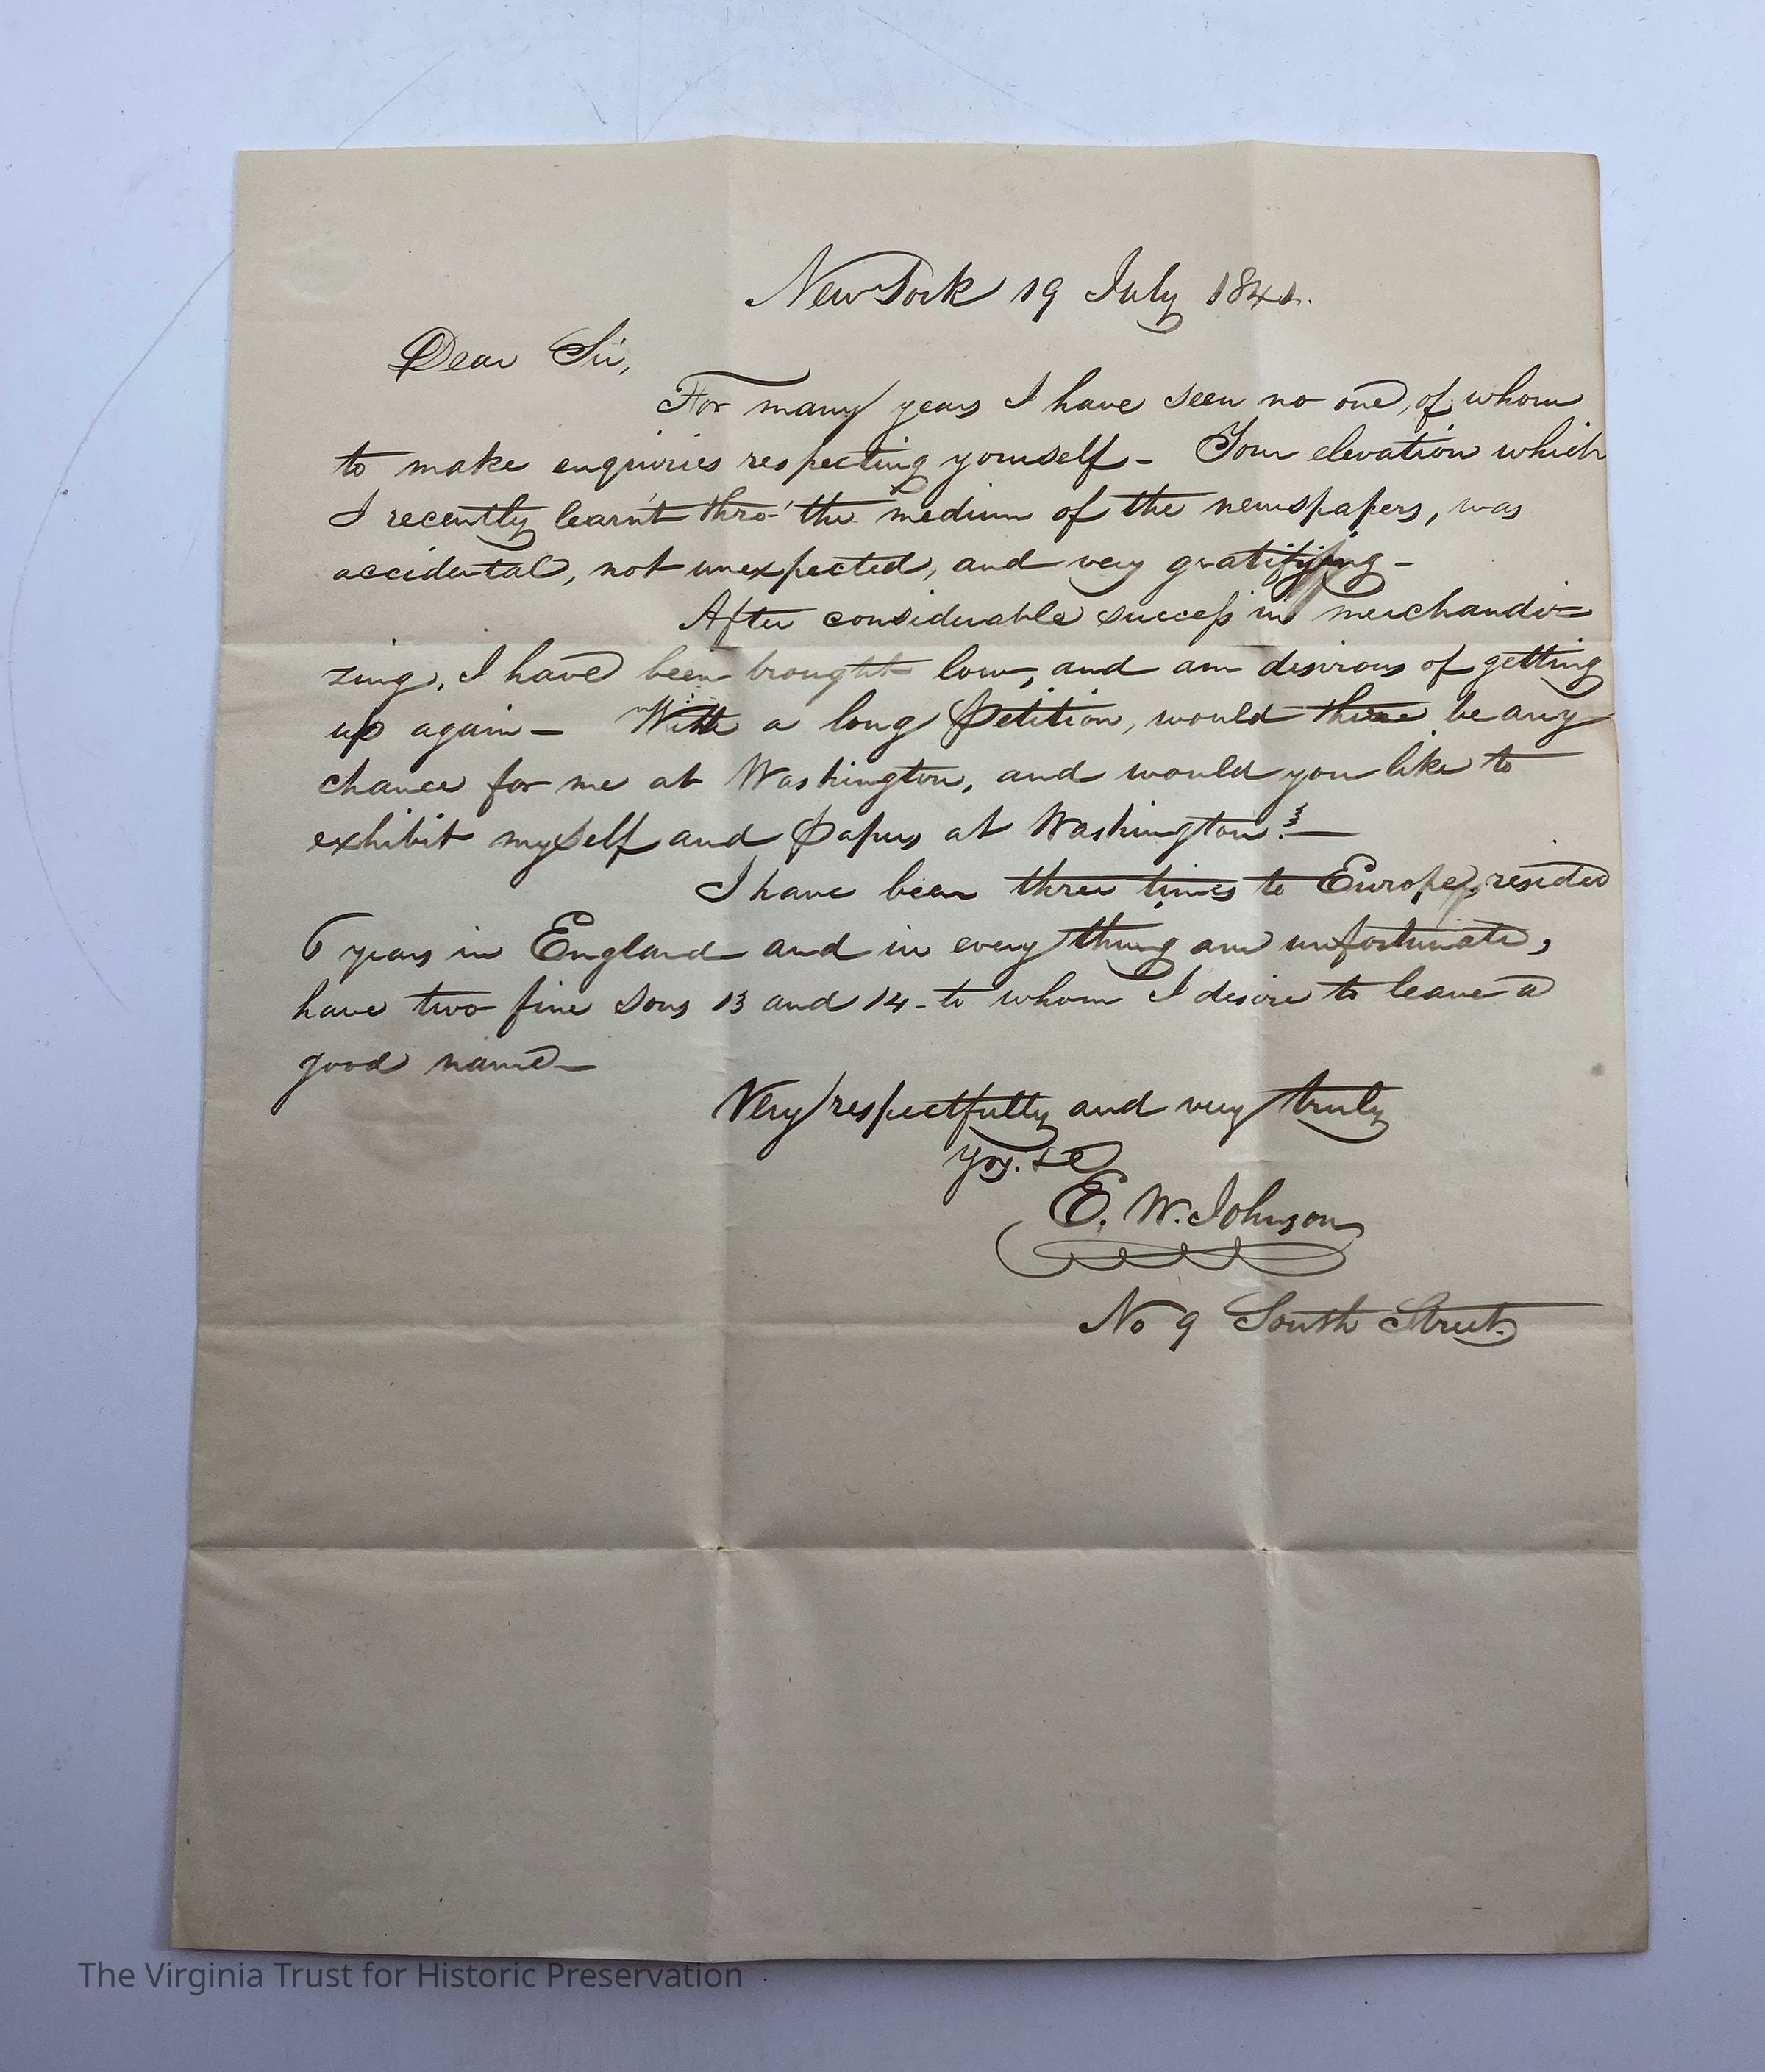 New York 19 July 1841.
Dear Sir,
For many years I have seen no one, of whom
to make enquiries respecting yourself - Your elevation which
I recently learn't thro' the medium of the newspapers, was
accidental, not unexpected, and very gratifying -
After considerable success in merchandi-
zing, I have been brought low, and am desirous of getting
up again - With a long Petition, would there be any
chance for me at Washington, and would you like to
exhibit myself and Papers at Washington? -
I have been three times to Europe, resided
6 years in England and in every thing am unfortunate,
have two fine sons 13 and 14 - to whom I desire to leave a
good name -
Very respectfully and very truly
yrs. &c
E. W. Johnson
No 9 South Street.
The Virginia Trust for Historic Preservation